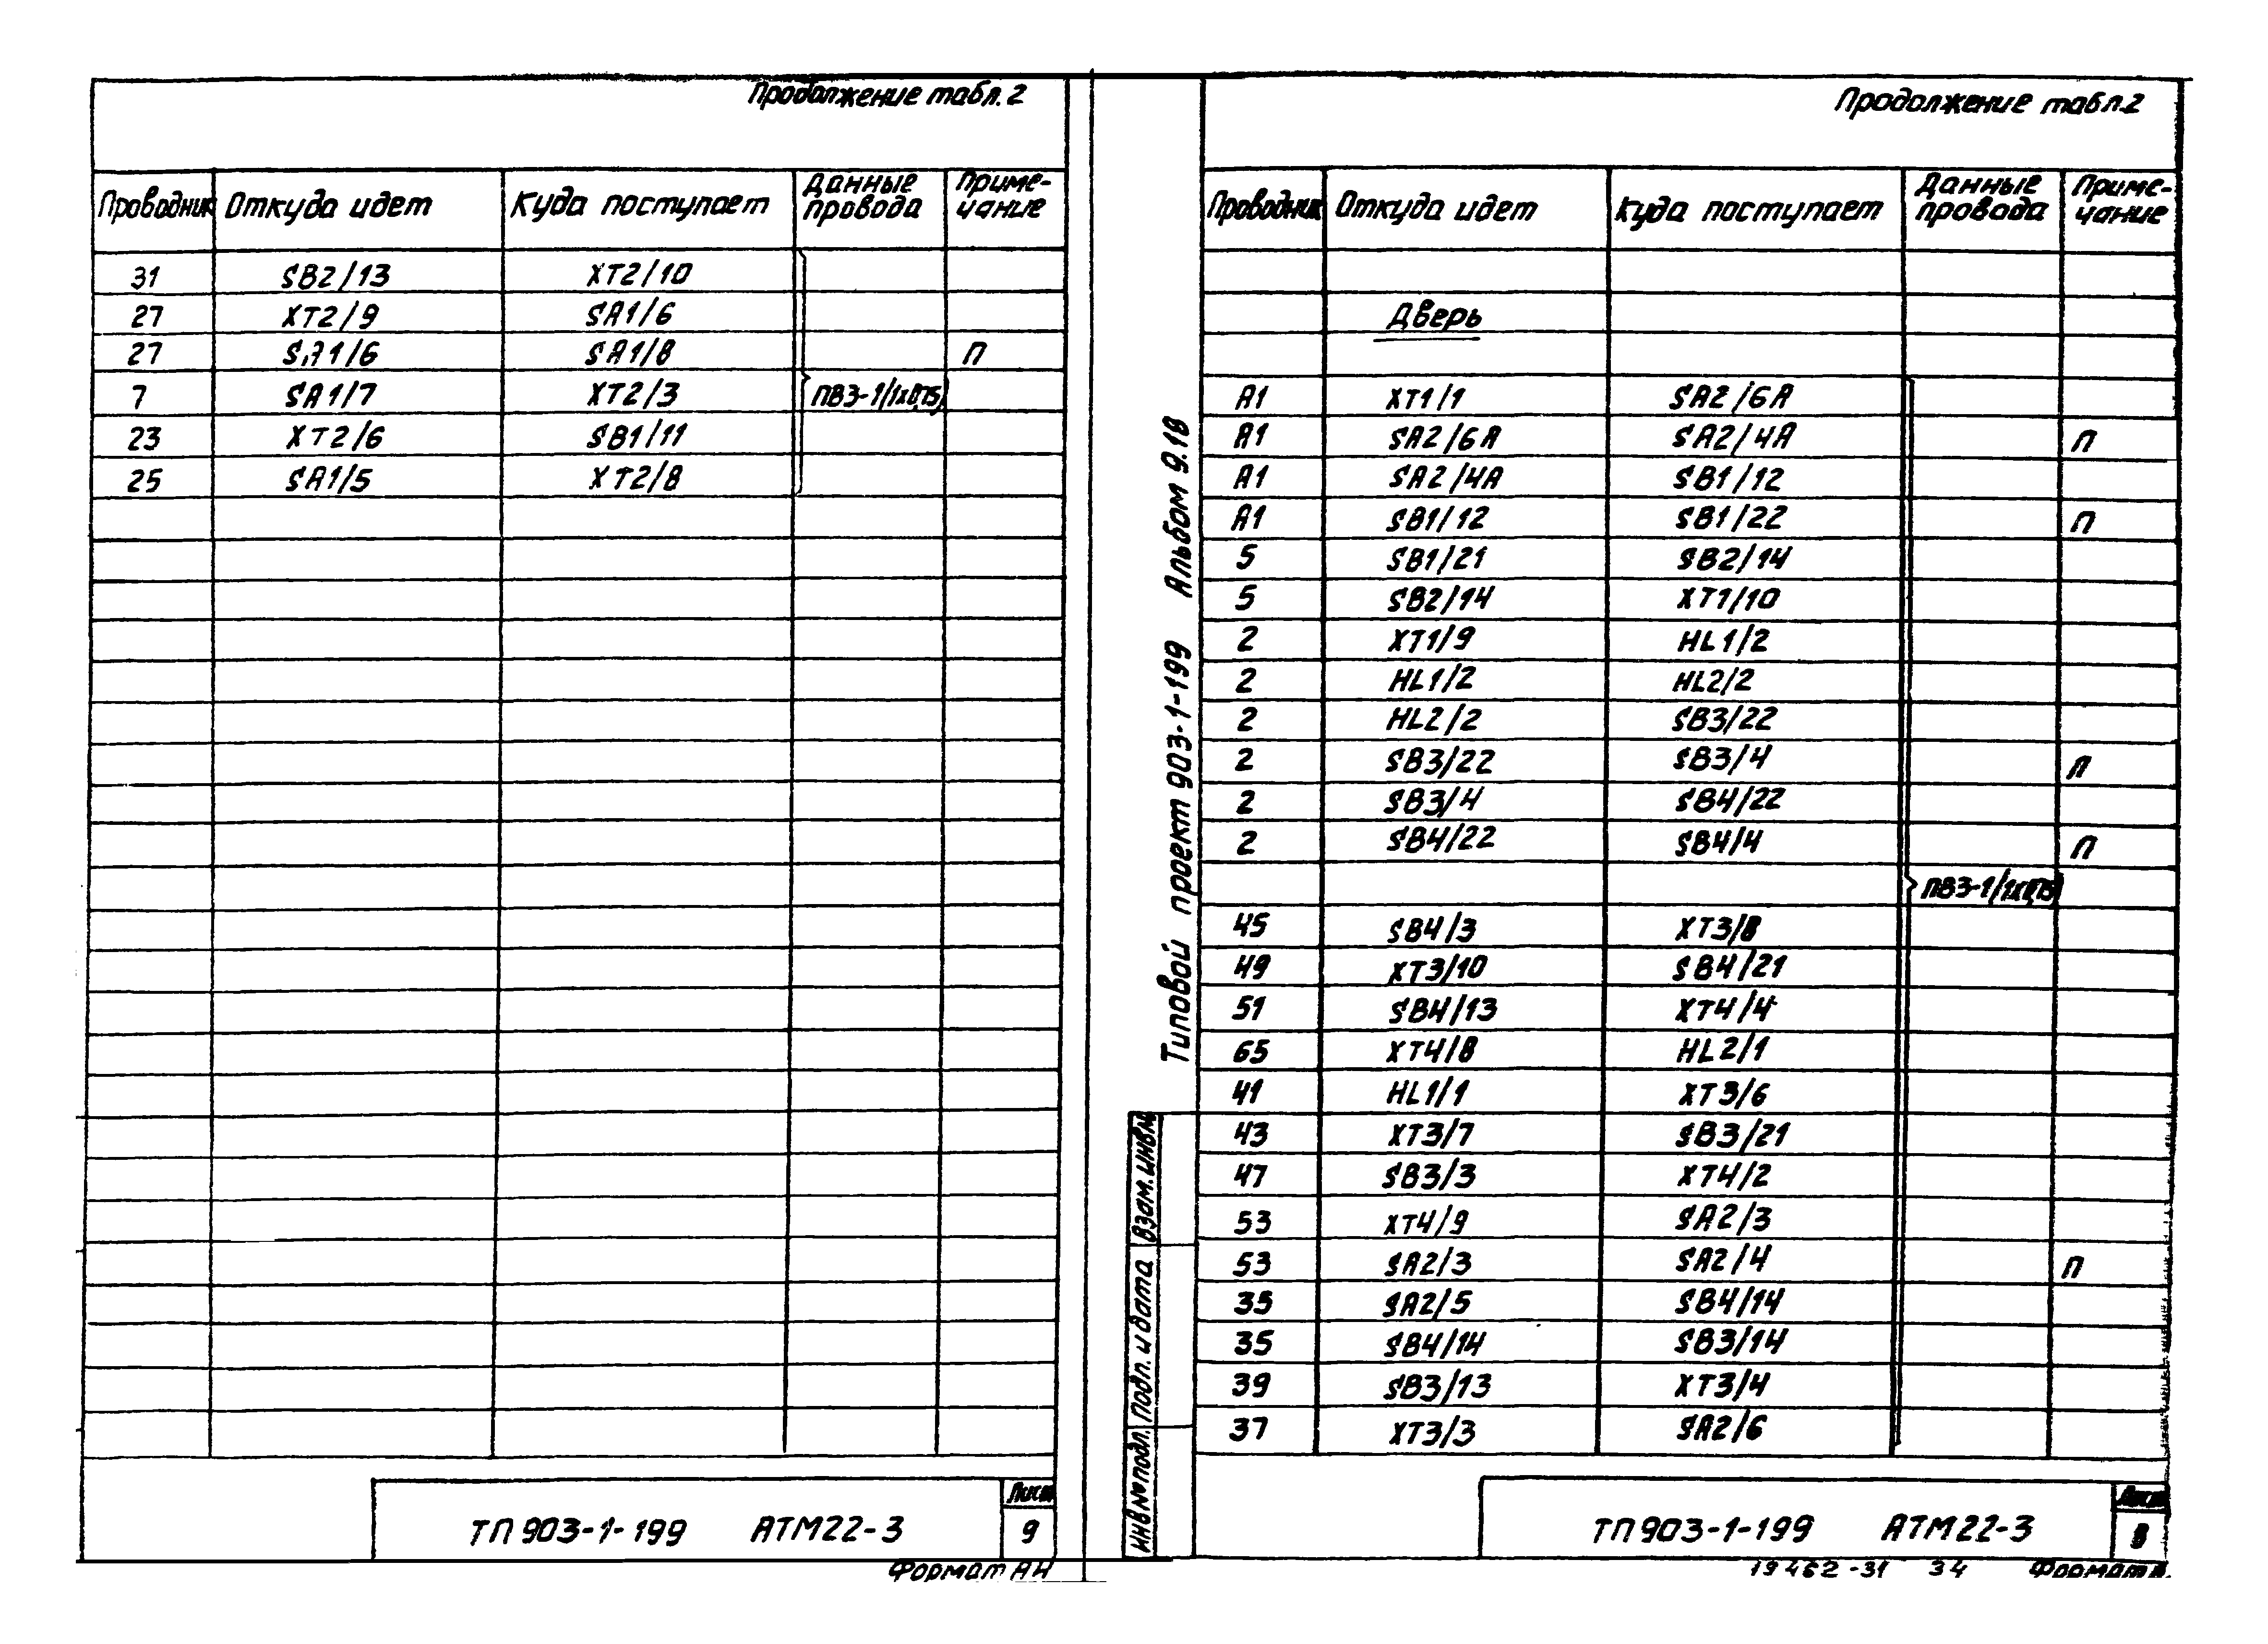 Продолжение табл. 2
Проводник Откуда идет Куда поступает Данные провода Приме-чание
31 SB2/13 XT2/10
27 XT2/9 SA1/6
27 SA1/6 SA1/8 П
7 SA1/7 XT2/3 ПВ3-1/1х0,75/
23 XT2/6 SB1/11
25 SA1/5 XT2/8
Лист
ТП 903-1-199 АТМ22-3 9
Формат А4
Продолжение табл. 2
Проводник Откуда идет Куда поступает Данные провода Приме-чание
Дверь
A1 XT1/1 SA2/6A
A1 SA2/6A SA2/4A П
A1 SA2/4A SB1/12
A1 SB1/12 SB1/22 П
5 SB1/21 SB2/14
5 SB2/14 XT1/10
2 XT1/9 HL1/2
2 HL1/2 HL2/2
2 HL2/2 SB3/22
2 SB3/22 SB3/4 П
2 SB3/4 SB4/22
2 SB4/22 SB4/4 П
ПВ3-1/1х0,75/
45 SB4/3 XT3/8
49 XT3/10 SB4/21
51 SB4/13 XT4/4
65 XT4/8 HL2/1
41 HL1/1 XT3/6
43 XT3/7 SB3/21
47 SB3/3 XT4/2
53 XT4/9 SA2/3
53 SA2/3 SA2/4 П
35 SA2/5 SB4/14
35 SB4/14 SB3/14
39 SB3/13 XT3/4
37 XT3/3 SA2/6
Типовой проект 903-1-199 Альбом 9.18
Инв№подл. Подп. и дата Взам.инв№
Лист
ТП 903-1-199 АТМ22-3 8
19462-31 34 Формат